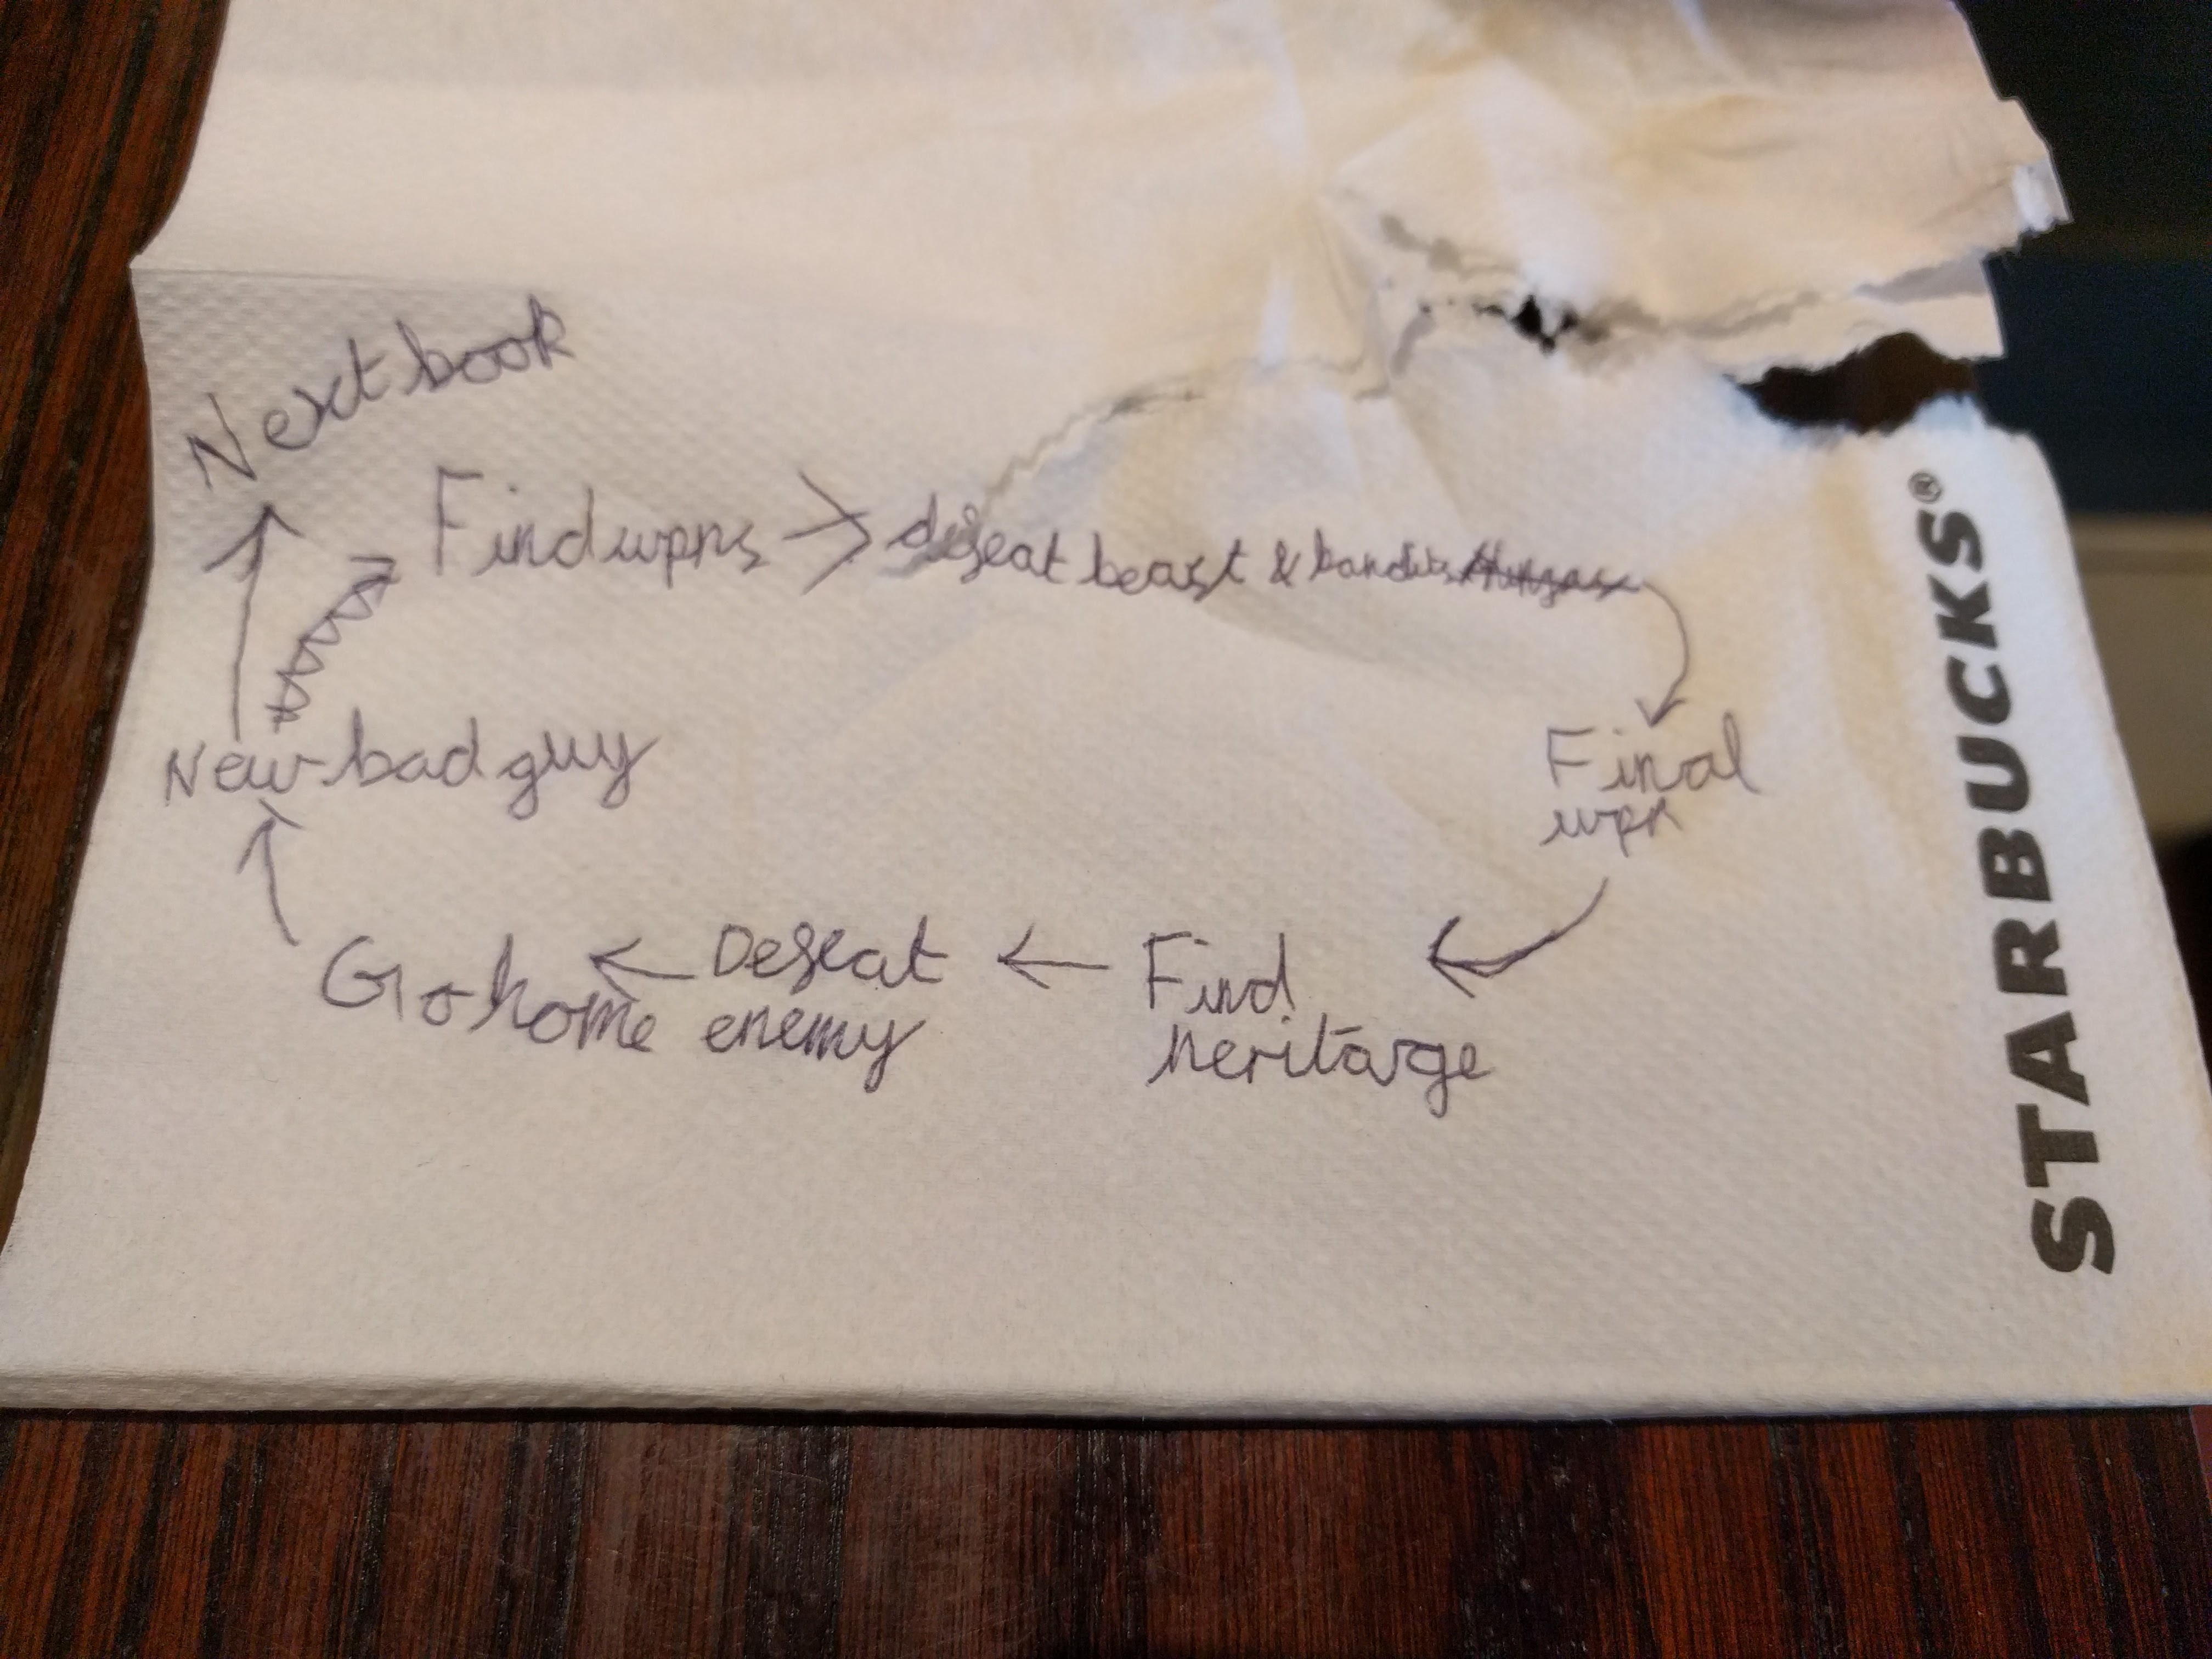 Next book
Find wpns
defeat beast & bandits
Final
wpn
New bad guy
Find
heritage
Defeat
enemy
Go home
STARBUCKS®